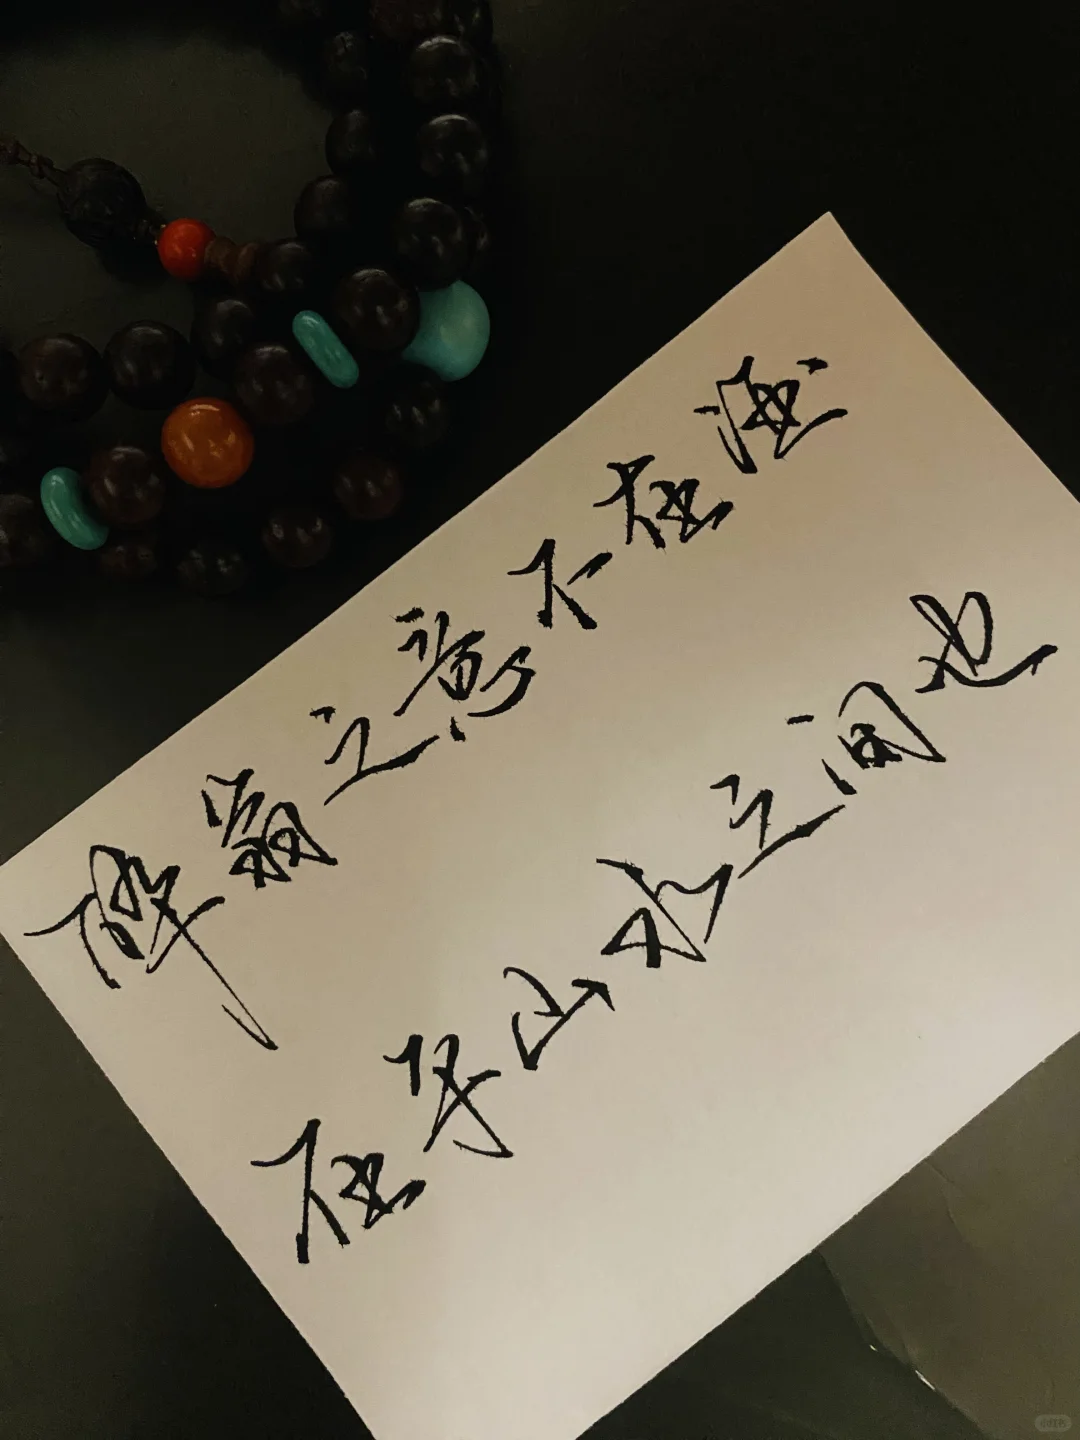 醉翁之意不在酒
在乎山水之间也
小红书